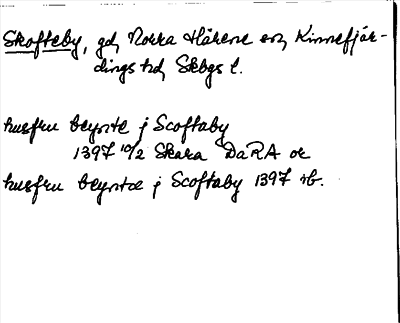 Skofteby, gd, Norra Härene sn, Kinnefjär-
dings hd, Skbgs l.
husfru beynte j Scoftaby
1397 10/2 Skara DaRA or
husfru beyntæ j Scoftaby 1397 rb.